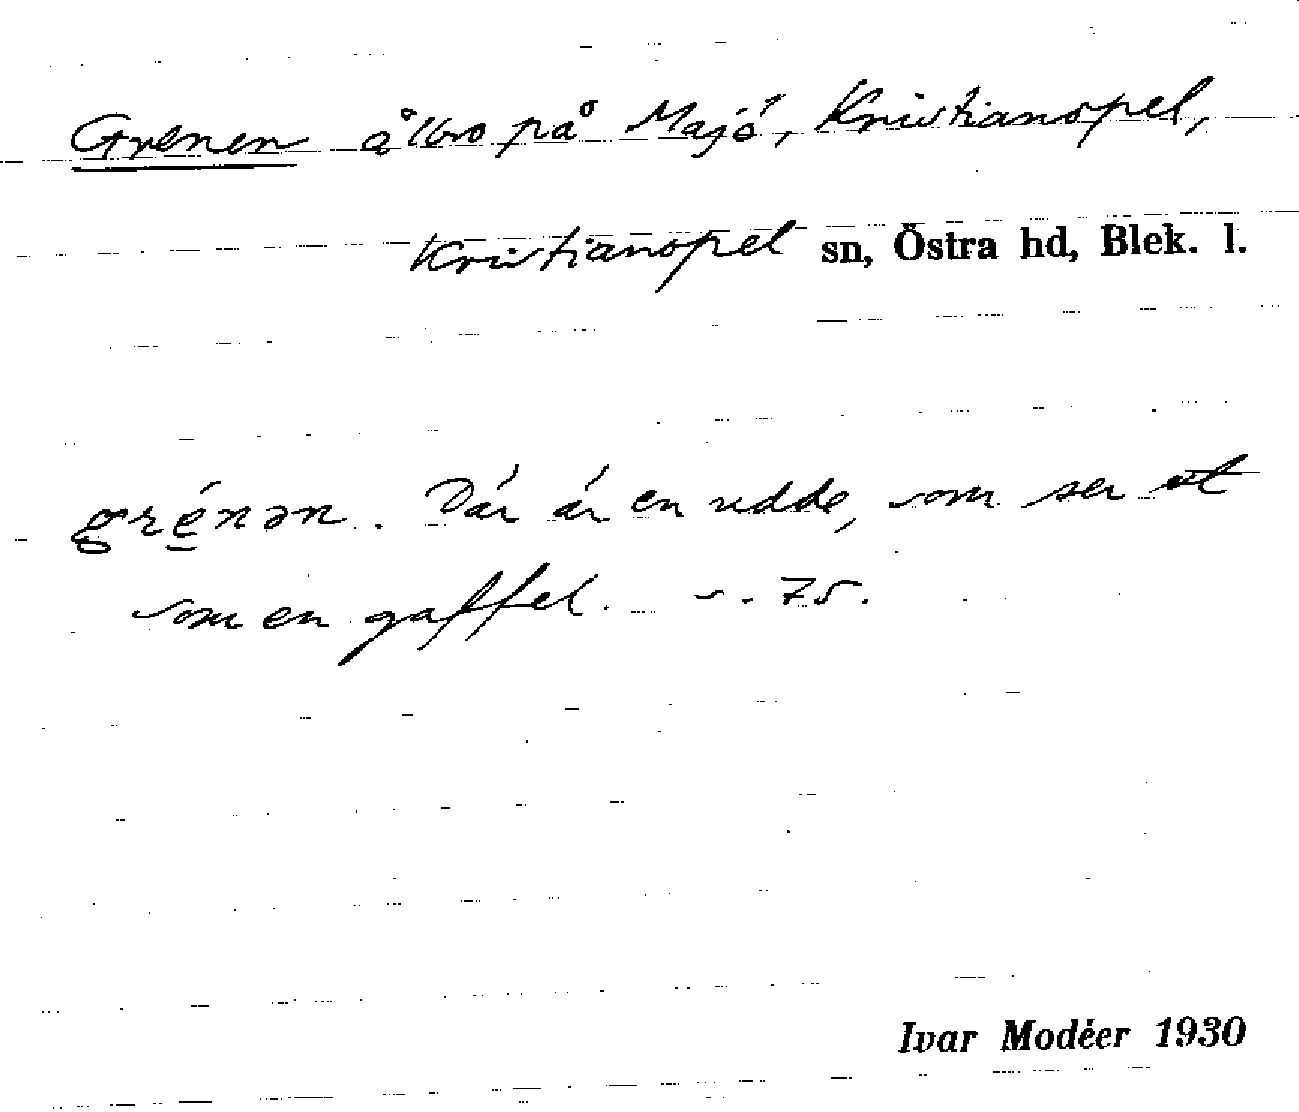 Grenen på Majö, Kristianopel,
Kristianopel sn, Östra hd, Blek. l.
grénən. Där är en udde, som ser ut
som en gaffel. 75.
Ivar Modéer 1930